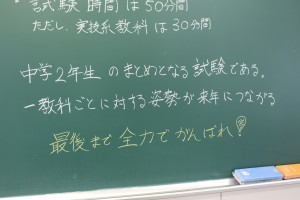 ・試験時間は50分間
ただし、実技系教科は30分間
中学2年生のまとめとなる試験である。
一教科ごとに対する姿勢が来年につながる
最後まで全力でがんばれ!